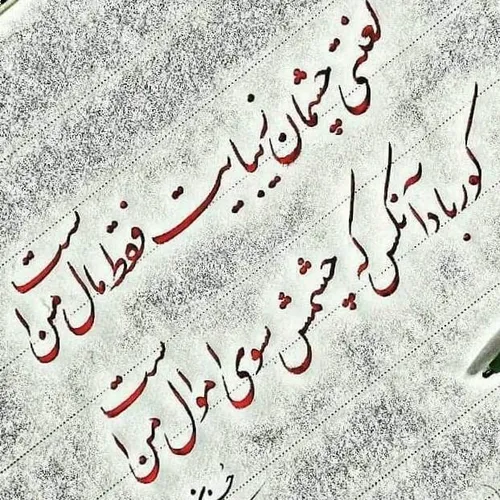 گفتی چشمان زیبایت فقط مال من است
کور بادا آنکس که چشمش سوی اموال من است